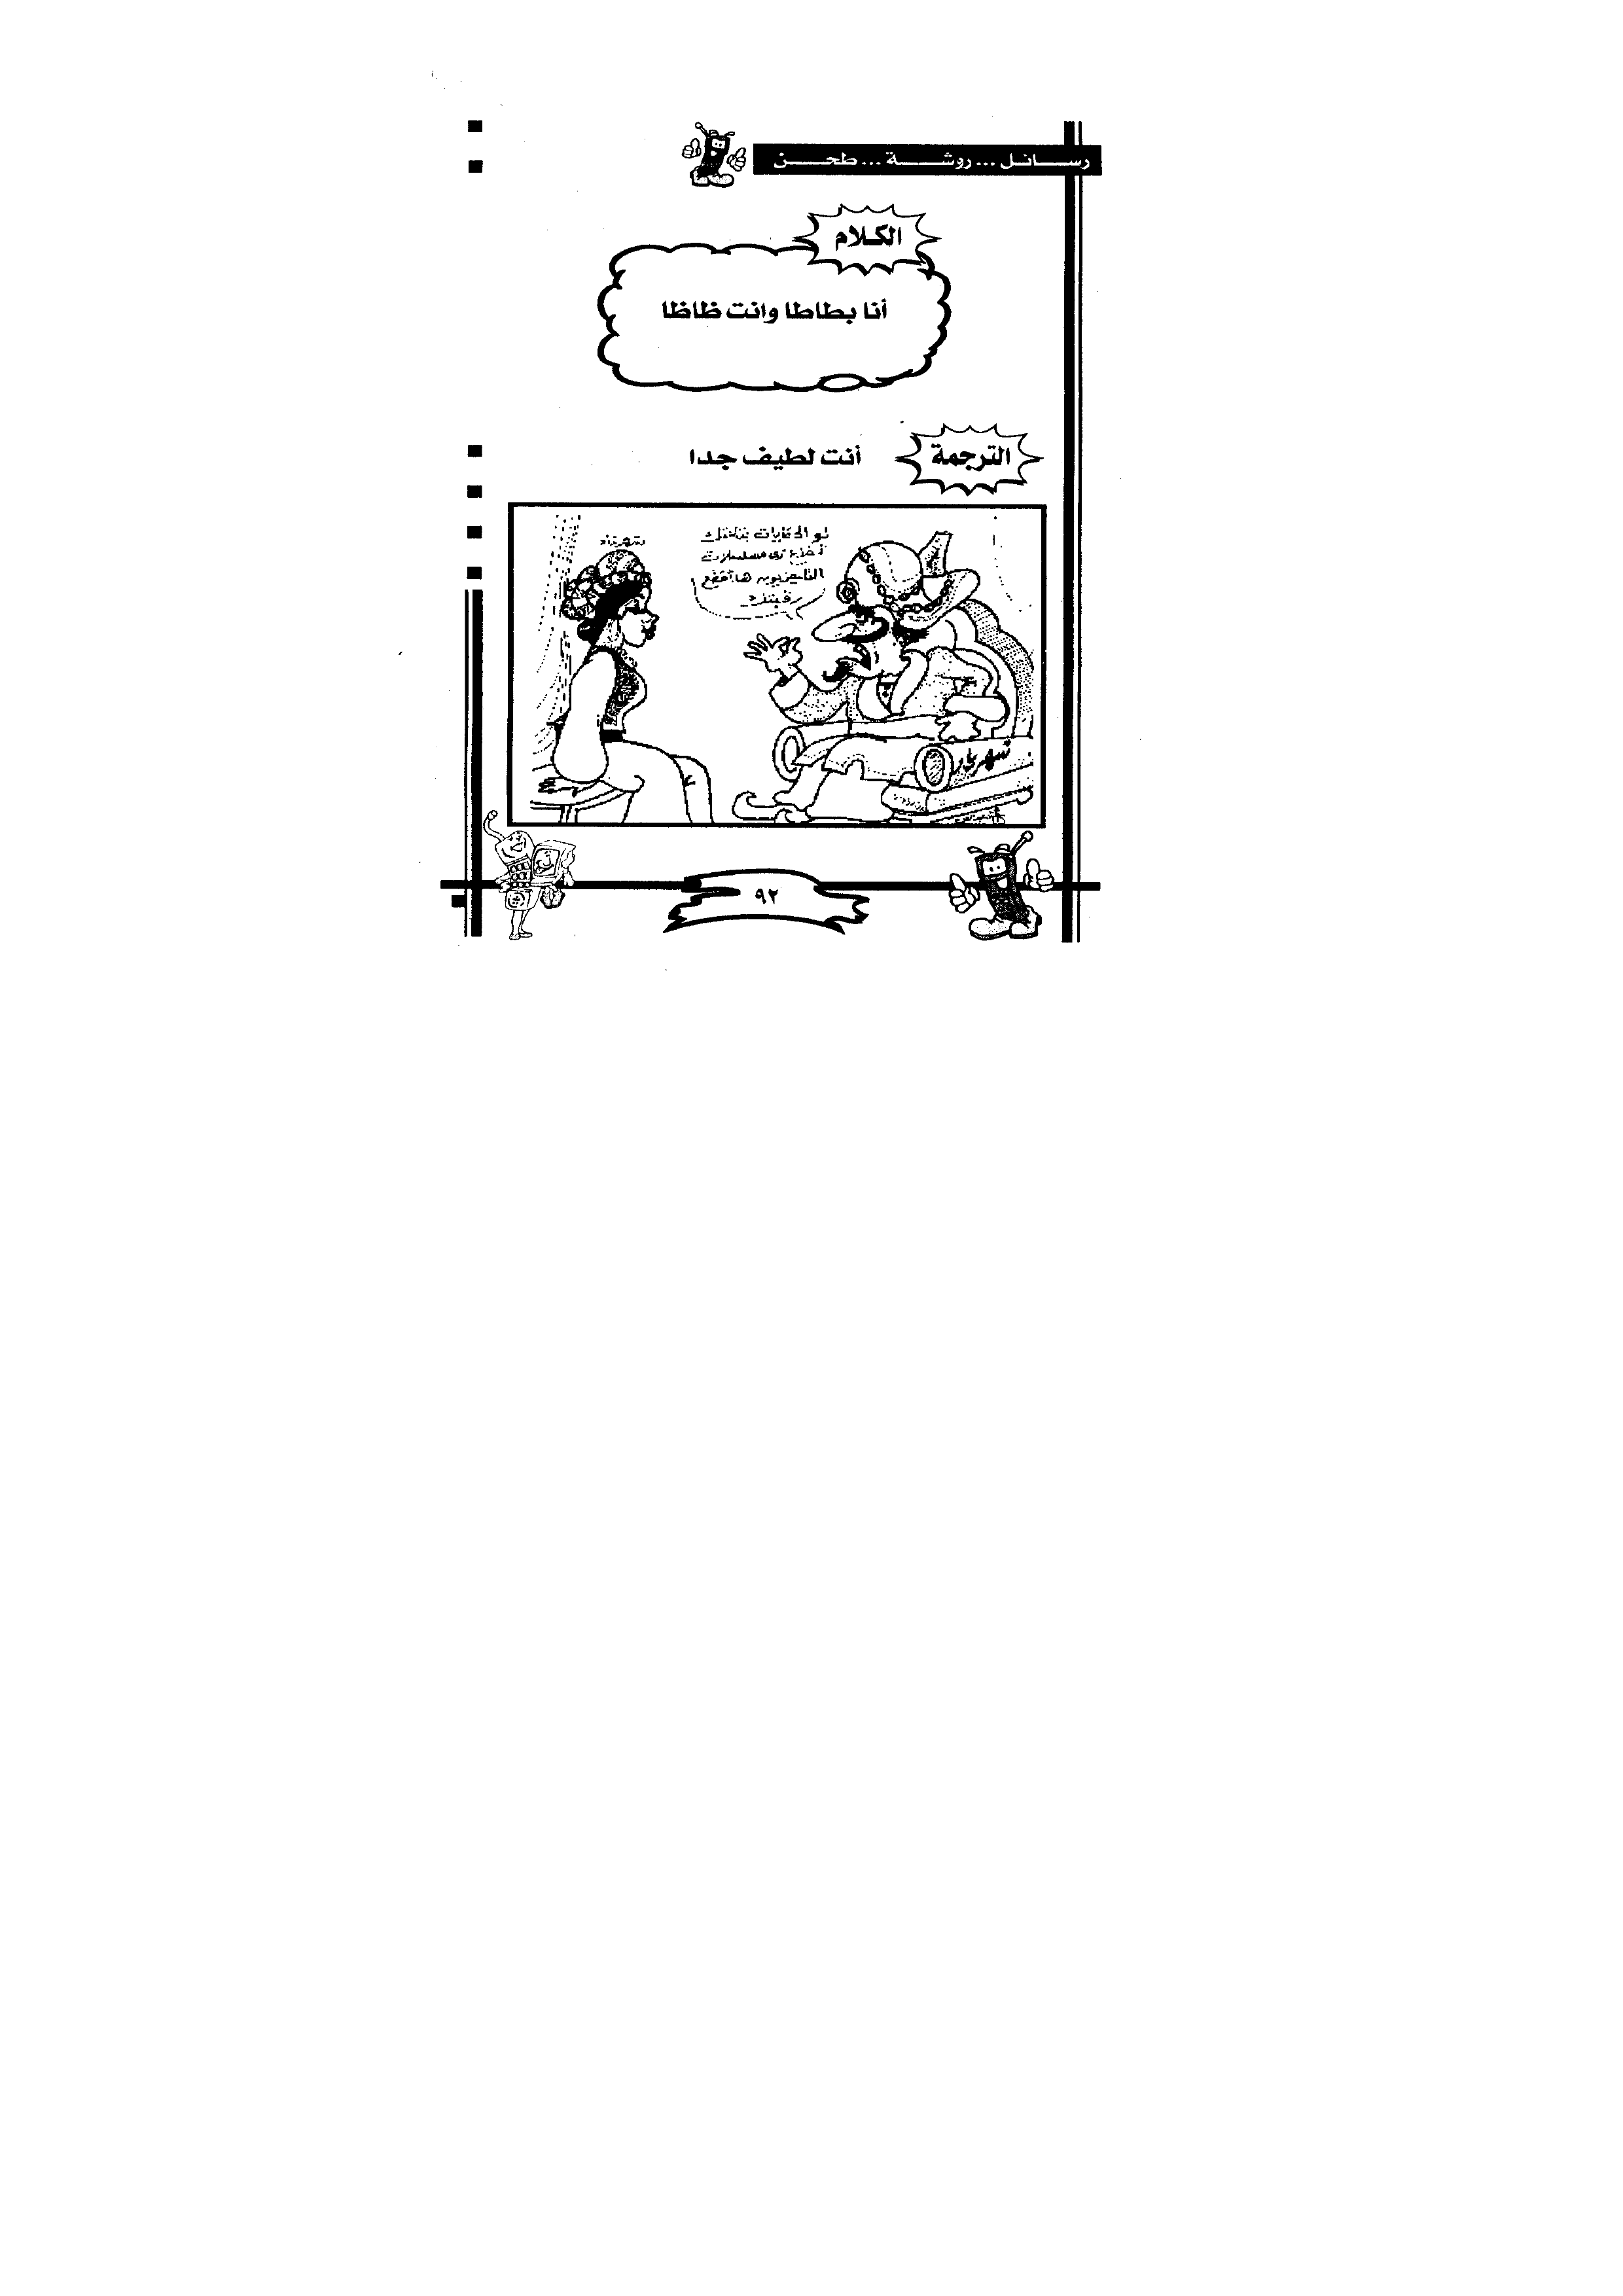 رسائل ... روشة ... طحن
الكلام
أنا بطاطا وانت ظاظا
الترجمة
أنت لطيف جدا
شهرزاد
لو الحكايات بتاعتك
زى مسلسلات
التليفزيون هاأقطع
رقبتك
شهريار
٩٢